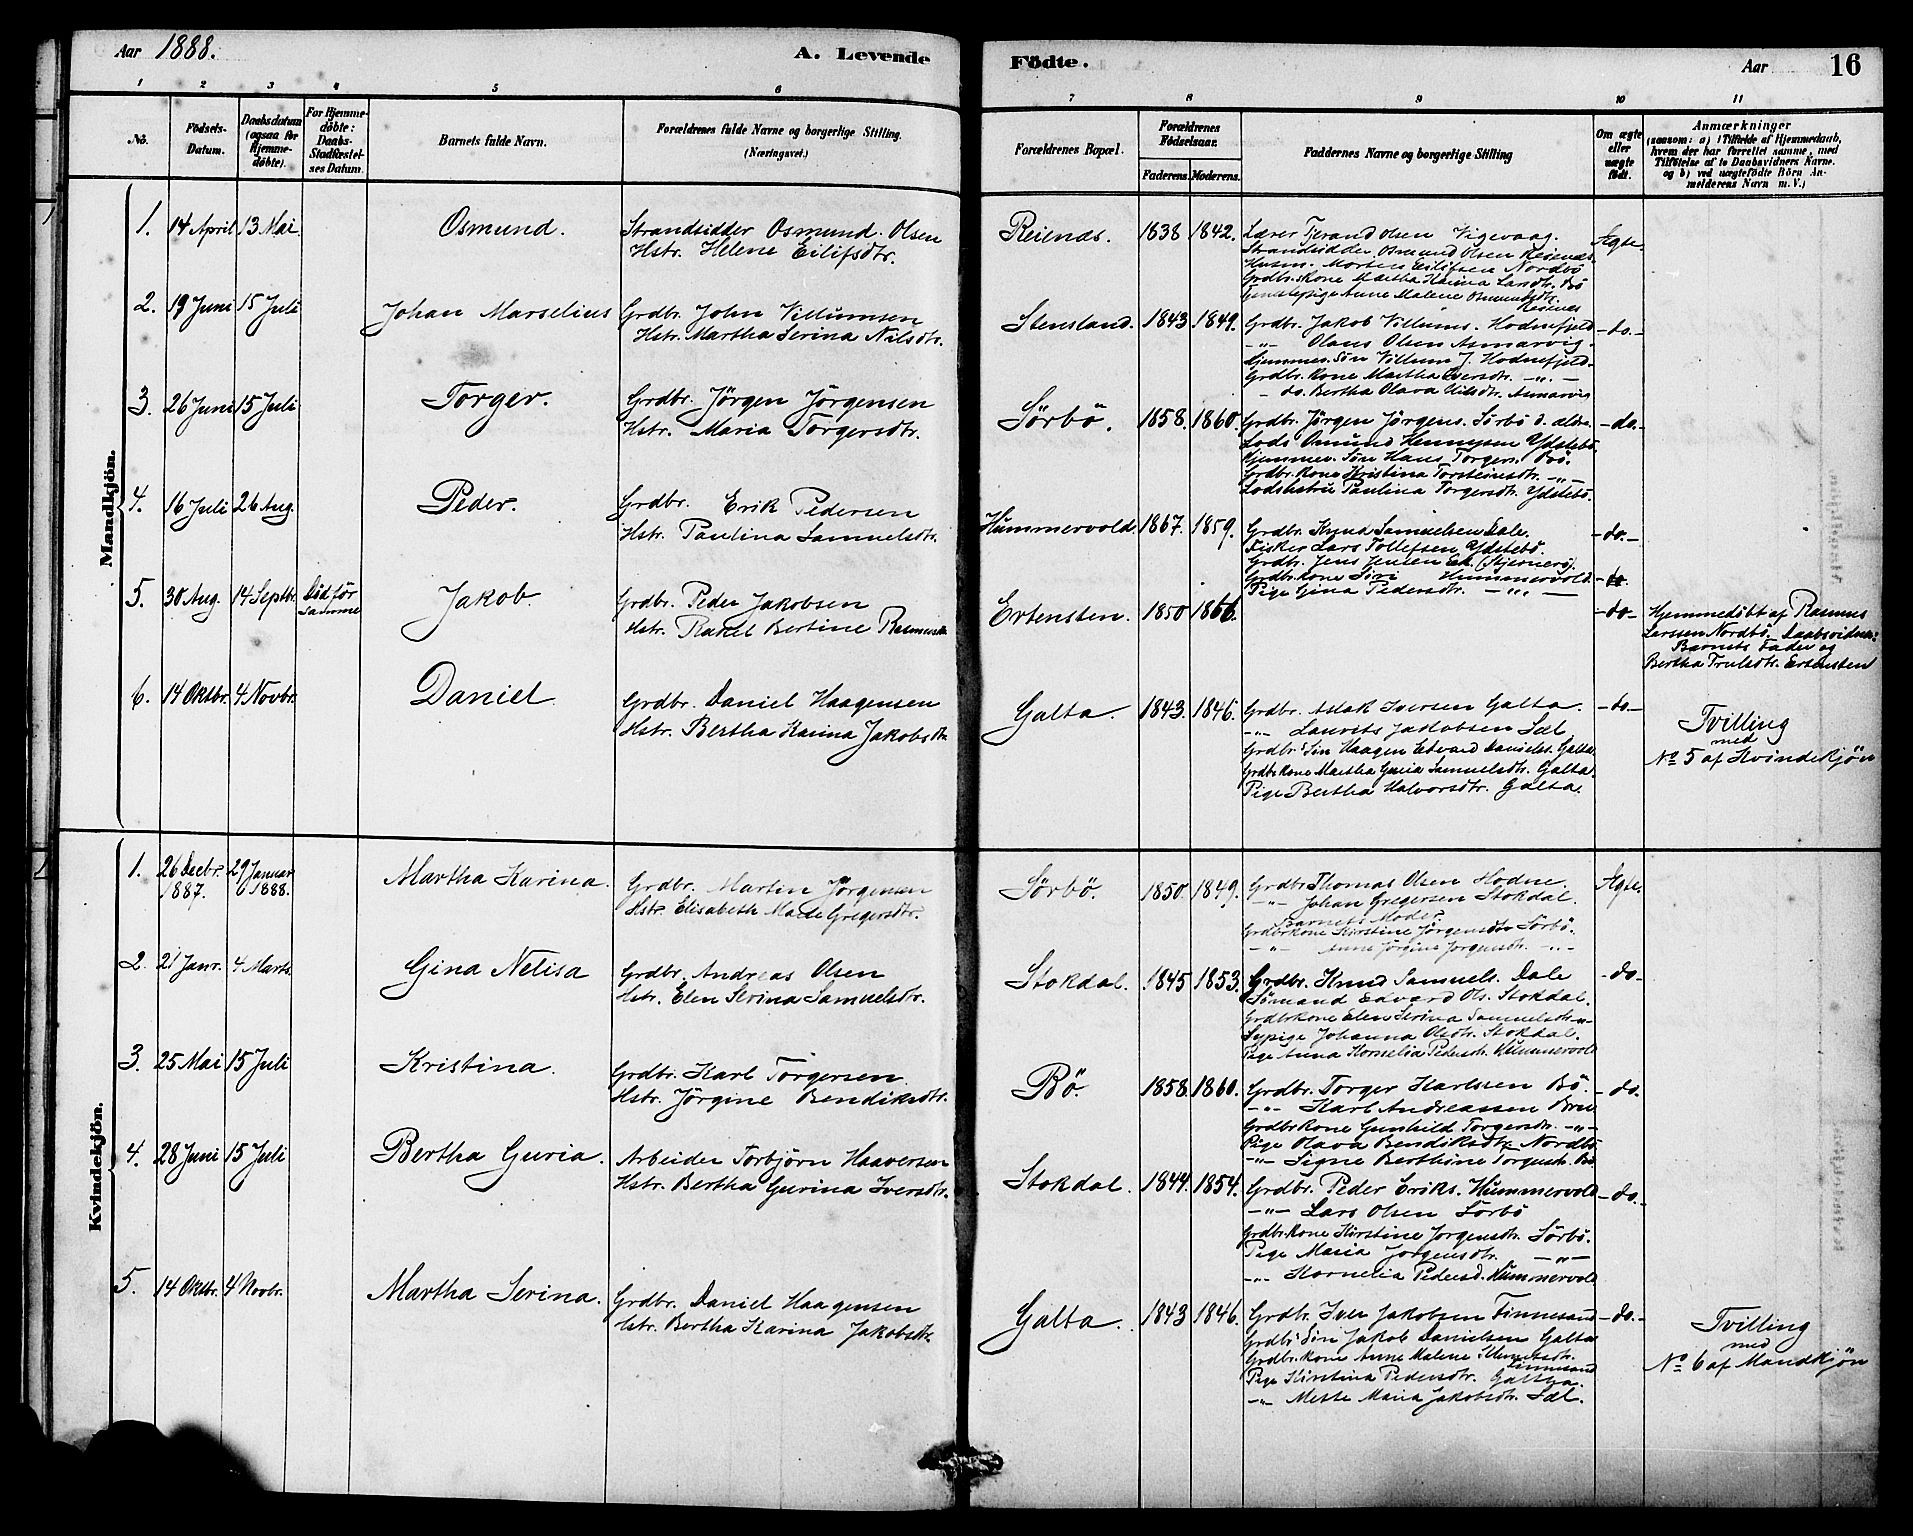 Aar 1888.
A. Levende
Födte.
Aar
16
1 2 3 4 5 6 7 8 9 10 11
No.
Födsels-
Datum.
Daabsdatum
(ogsaa for
Hjemme-
döbte).
For Hjemme-
döbte:
Daabs-
Stadfæstel-
ses Datum.
Barnets fulde Navn.
Forældrenes fulde Navne og borgerlige Stilling.
(Næringsvei.)
Forældrenes Bopæl.
Forældrenes
Födselsaar.
Faderens. Moderens.
Faddernes Navne og borgerlige Stilling
Om ægte
eller
uægte
födt.
Anmærkninger
(saasom: a) i Tilfælde af Hjemmedaab,
hvem der har forrettet samme, med
Tilföielse af to Daabsvidners Navne.
og b) ved uægtefödte Börn An-
melderens Navn m. V.)
Mandkjön.
1. 14 April 13 Mai. Osmund.
Strandsidder Osmund Olsen
Hstr. Helene Eilifsdtr.
Reienæs. 1838 1842.
Lærer Tjerand Olsen Vigevaag.
Strandsidder Osmund Olsen Reienæs.
Husm. Morten Eilifsen Nordbö
Grdbr. kone Martha Karina Larsdtr. Bö
Anne Malene Osmundsdtr.
Reienæs
Ægte.
2. 19 Juni 15 Juli Johan Marselius
Grdbr. John Villumsen
Hstr. Martha Serina Nilsdtr.
Stensland. 1843 1849.
Grdbr. Jakob Villums. Hodnefjeld
-"- Olaus Olsen Asmarvig.
Hjemmev. Sön Villum J. Hodnefjeld.
Grdbr. kone Martha Iversdtr. -"-
- do. Bertha Olava Nilsdtr. Asmarvig
- do. -
3. 26 Juni 15 Juli Torger.
Grdbr. Jörgen Jörgensen
Hstr. Maria Torgersdtr.
Sörbö. 1858. 1860.
Grdbr. Jörgen Jörgens. Sörbö d. ældre.
Lods Osmund Henningsen Ydstebö
Hjemmev. Sön Hans Torgers. Bö.
Grdbr. kone Kristina Torsteinsdtr. -"-
Lodshstru Paulina Torgersdtr. Ydstebö.
- do. -
4. 16 Juli 26 Aug. Peder.
Grdbr. Erik Pedersen
Hstr. Paulina Samuelsdtr.
Hummervold 1867. 1859.
Grdbr. Knud Samuelsen Dale.
Fisker Lars Tollefsen Ydstebö.
Grdbr. Jens Jensen Eik (Stjernerö).
Grdbr. kone Siri Hummervold.
Pige Gina Pedersdtr. -"-
- do. -
5. 30 Aug. 14 Septbr. Död för
samme
Jakob.
Grdbr. Peder Jakobsen
Hstr. Rakel Bertine Rasmusdtr.
Ertensten. 1850 1866.
- do -
Hjemmedöbt af Rasmus
Larssen Nordbö. Daabsvidner:
Barnets Fader og
Bertha Trulsdtr. Ertensten
6. 14 Oktbr. 4 Novbr. Daniel
Grdbr. Daniel Haagensen
Hstr. Bertha Karina Jakobsdtr.
Galta. 1843. 1846.
Grdbr. Aslak Iversen Galta.
-"- Laurits Jakobsen Sæl
Grdbr. Sön Haagen Edvard Daniels. Galta.
Grdbr. kone Martha Guria Samuelsdtr. Galta.
Pige Bertha Halvorsdtr. Galta.
- do -
Tvilling
med
No 5 af Kvindekjön
Kvindekjön.
1. 26 Decbr. 1887. 29 Januar 1888. Martha Karina.
Grdbr. Martin Jörgensen
Hstr. Elisabeth Marie Gregersdtr.
Sörbö. 1850. 1849.
Grdbr. Thomas Olsen Hodne.
-"- Johan Gregersen Stokdal.
Barnets Moder.
Grdbrkone Kirstine Jörgensdtr Sörbö.
-"- Anne Jörgine Jörgensdtr. -"-
Ægte.
2. 21 Janr. 4 Marts. Gina Netisa
Grdbr. Andreas Olsen
Hstr. Elen Serina Samuelsdtr.
Stokdal. 1845 1853.
Grdbr. Knud Samuels. Dale
Sömand Edvard Ols. Stokdal.
Grdbrkone Elen Serina Samuelsdtr -"-
Sypige Johanna Olsdtr. Stokdal.
Pige Anna Kornelia Pedersdtr. Hummervold
- do -
3. 25 Mai 15 Juli Kristina.
Grdbr. Karl Torgersen.
Hstr. Jörgine Bendiksdtr.
Bö. 1858. 1860.
Grdbr. Torger Karlssen Bö.
-"- Karl Andreassen Bru
Grdbrkone Gunhild Torgersdtr. -"-
Pige Olava Bendiksdtr. Nordbö
-"- Signe Berthine Torgersdtr. Bö
- do.
4. 28 Juni 15 Juli Bertha Guria.
Arbeider Torbjörn Haaversen
Hstr. Bertha Gurina Iversdtr.
Stokdal. 1844. 1854.
Grdbr. Peder Eriks. Hummervold
-"- Lars Olsen Sörbö
Grdbr. kone Kirstine Jörgensdtr. Sörbö.
Pige Maria Jörgensdtr. -"-
-"- Kornelia Pedersd. Hummervold
- do. -
5. 14 Oktbr. 4 Novbr. Martha Serina.
Grdbr. Daniel Haagensen
Hstr. Bertha Karina Jakobsdtr.
Galta. 1843 1846.
Grdbr. Iver Jakobsen Finnesand
Grdbr. Sön Jakob Danielsen Galta
Grdbr. kone Anne Malene
Finnesand
Pige Kirstina Pedersdtr. Galta.
-"- Mette Maria Jakobsdtr. Sæl.
- do. -
Tvilling
med
No 6 af Mandkjön